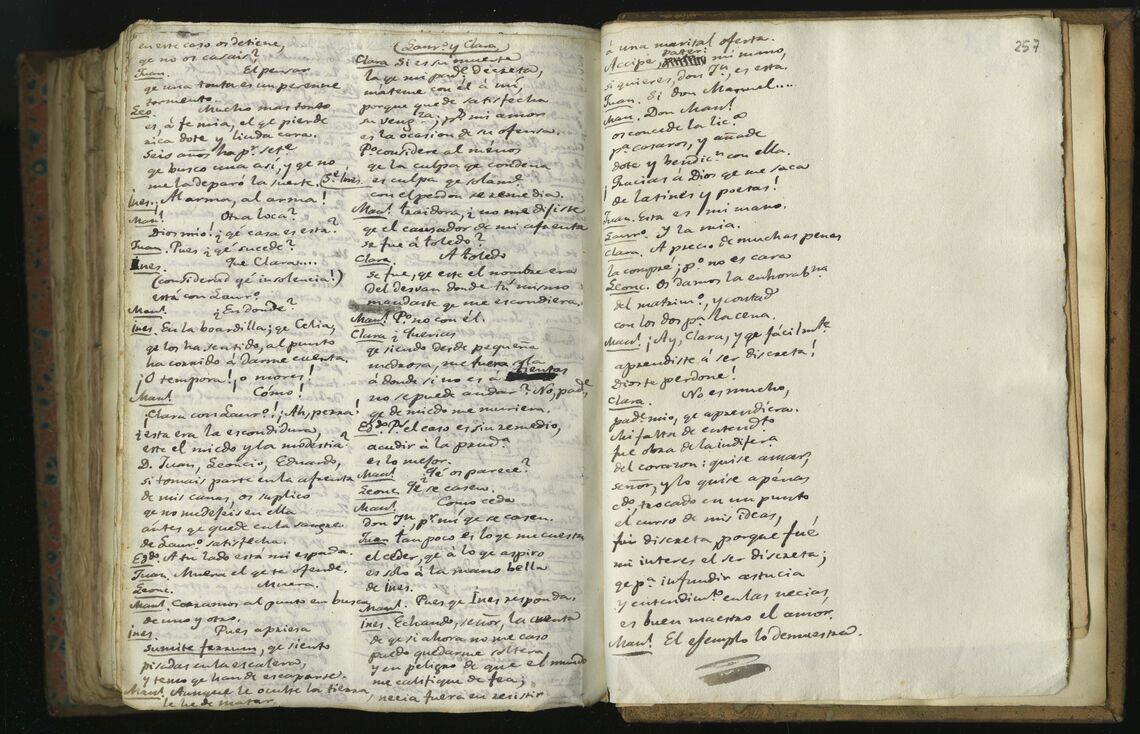 en este caso os detiene,
qe no os casais?
Juan. El pensar
qe una tonta es un perenne
tormento.
Leo. Mucho mas tonto
es, á fe mia, el qe pierde
rica dote y linda cara.
Seis años ha pr. siete
qe busco una así, y qe no
me la deparó la suerte. (Se. Ines
Ines. Al arma, al arma!
Manl. Otra loca?
Dios mio! ¿qé casa es esta?
Juan. Pues ¿qé sucede?
Ines. Que Clara....
(considerad qé insolencia!)
está con Lauro.
Manl. ¿En donde?
Ines. En la boardilla; qe Celia,
qe los ha sentido, al punto
ha corrido á darme cuenta.
¡O tempora!, o mores!
Manl. Cómo!
¡Clara con Lauro! ¡Ah, perra!
¿esta era la escondidura,
este el miedo y la modestia?
D. Juan, Leoncio, Eduardo,
si tomais parte en la afrenta
de mis canas, os suplico
qe no me dejeis en ella
antes qe quede en la sangre
de Lauro satisfecha.
Egdo. A tu lado está mi espada.
Juan. Muera el qe te ofende.
Leonc. Muera.
Manl. Corramos al punto en busca
de uno y otro.
Ines. Pues apriesa
sumite ferrum, qe siento
pisadas en la escalera,
y temo qe han de escaparse.
Manl. Aunque le oculte la tierra,
le he de matar.
(Lauro. y Clara)
Clara Si es su muerte
la qe mi padre decreta,
mateme con él á mí,
porque quede satisfecha
su venganza; ps. mi amor
es la ocasion de su ofensa.
Po. considere al ménos
qe la culpa qe condena
es culpa qe solamte.
con el perdon se remedia.
Manl. traidora, ¿no me dijiste
qe el causador de mi afrenta
se fue á toledo?
Clara. A toledo
se fue, qe este el nombre era
del desvan donde tú mismo
mandaste qe me escondiera.
Manl. Po. no con él.
Clara ¿Querias
qe siendo desde pequeña
medrosa, me fuera sola
á donde si no es á tientas
no se puede andar? No, padre
qe de miedo me muriera.
Egdo. Ps. el caso es sin remedio,
acudir á la prudcia
es lo mejor.
Manl. Qé os parece?
Leonc. Qe se casen.
Manl. Cómo ceda
don Jn., pr. mí qe se casen.
Juan tampoco es lo qe me cuesta
el ceder, qe á lo qe aspiro
es solo á la mano bella
de Ines.
Manl. Pues qe Ines responda.
Ines. Echando, señor, la cuenta
de qe si ahora no me caso
puedo quedarme soltera,
y en peligro de que el mundo
me califique de fea;
necia fuera en resistir
257
á una marital oferta.
Accipe, pater, mi mano,
si quieres, don Jn., es esta.
Juan. Si don Manuel....
Man. Don Manl.
os concede la lica.
pa. casaros, y añade
dote y bendicn. con ella.
¡Gracias á Dios qe me saca
de latines y poetas!
Juan. Esta es mi mano.
Lauro. Y la mia.
Clara. A precio de muchas penas
la compré; po. no es cara
Leonc. Os damos la enhorabna
del matrimo., y contad
con los dos pa. la cena.
Manl. ¡Ay, Clara, y qe fácilmte
aprendiste á ser discreta!
Dios te perdone!
Clara. No es mucho,
padre mio, qe aprendiera.
Mi falta de entendto
fue obra de la indifera
del corazon: quise amar,
señor, y lo quise apénas
cdo., trocado en un punto
el curso de mis ideas,
fui discreta, porque fué
mi interes el ser discreta;
qe pa. infundir astucia
y entendimto. en las necias,
es buen maestro el amor.
Manl. El ejemplo lo demuestra.